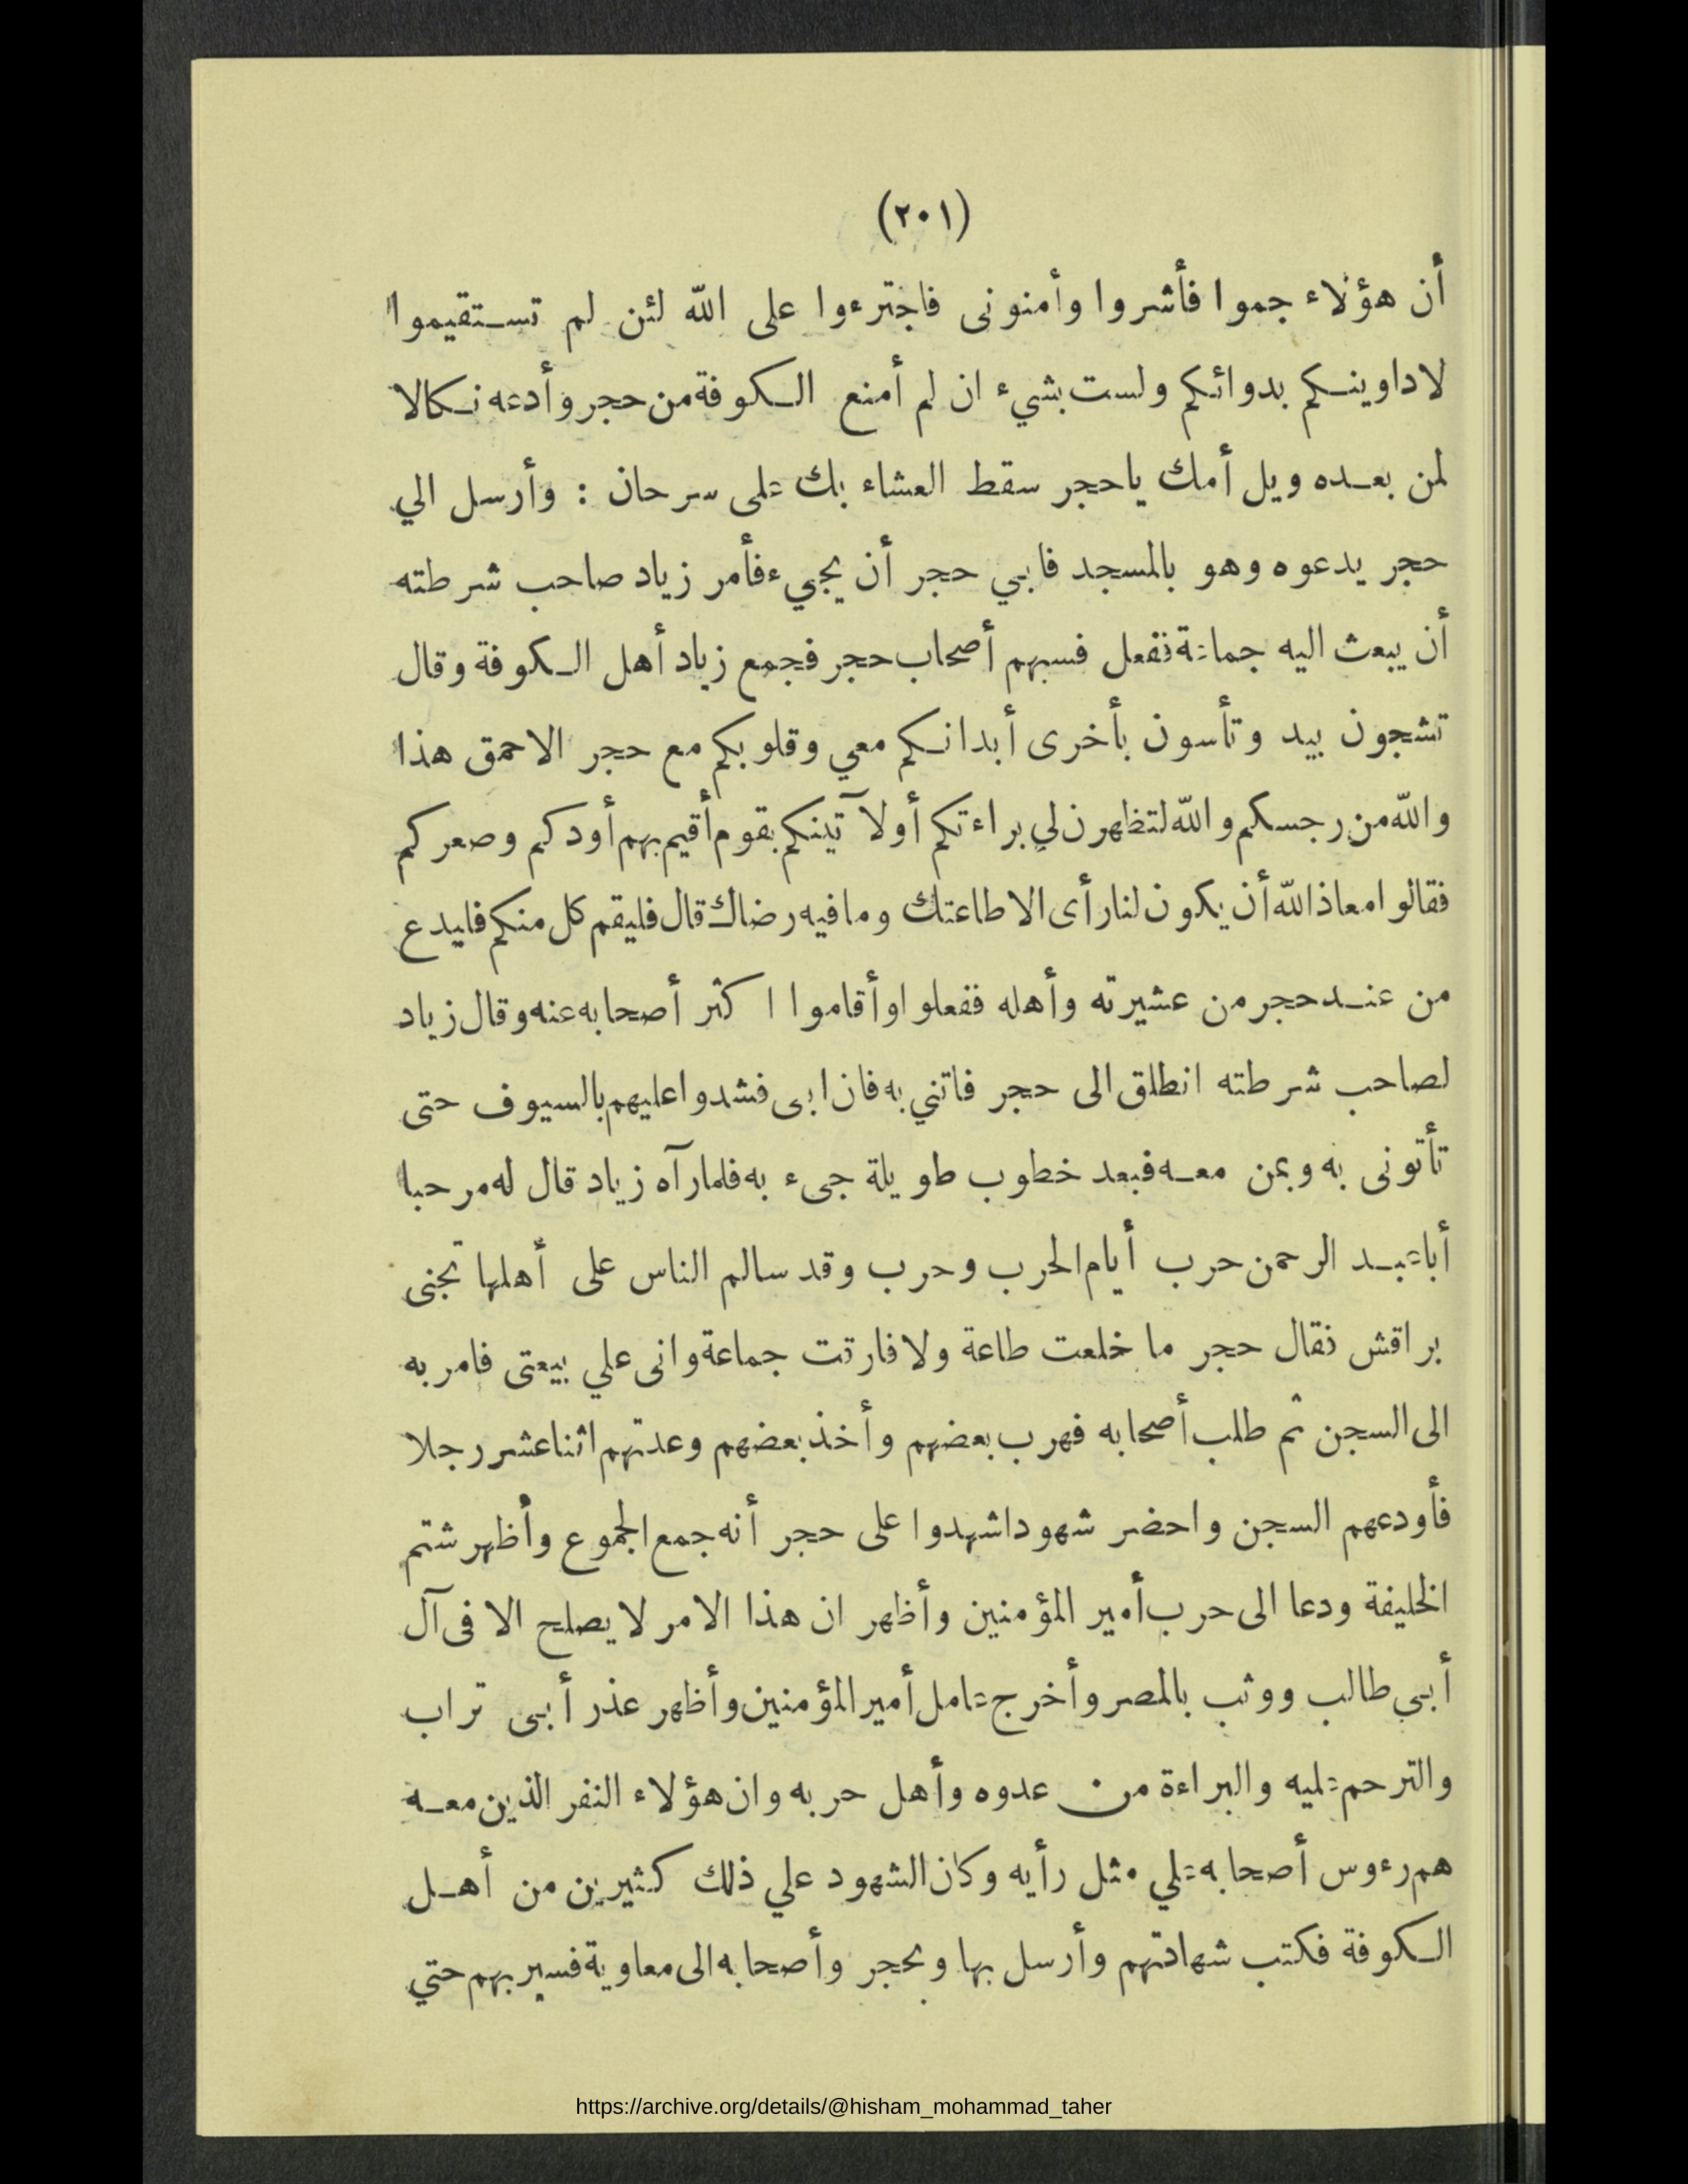 (٢٠١)
أن هؤلاء جموا فأشروا وأمنونى فاجترءوا على الله لئن لم تستقيموا
لاداوينكم بدوائكم ولست بشيء ان لم أمنع الكوفة من حجر وأدعه نكالا
لمن بعده ويل أمك ياحجر سقط العشاء بك على سرحان : وأرسل الي
حجر يدعوه وهو بالمسجد فابي حجر أن يجيء فأمر زياد صاحب شرطته
أن يبعث اليه جماعة ففعل فسبهم أصحاب حجر فجمع زياد أهل الكوفة وقال
تشجون بيد وتأسون بأخرى أبدانكم معي وقلوبكم مع حجر الاحمق هذا
والله من رجسكم والله لتظهرن لي براءتكم أولآتينكم بقوم أقيم بهم أودكم وصعركم
فقالوا معاذ الله أن يكون لنا رأى الا طاعتك وما فيه رضاك قال فليقم كل منكم فليدع
من عند حجر من عشيرته وأهله ففعلوا وأقاموا اكثر أصحابه عنه وقال زياد
لصاحب شرطته انطلق الى حجر فاتني به فان ابى فشدوا عليهم بالسيوف حتى
تأتونى به وبمن معه فبعد خطوب طويلة جىء به فلما رآه زياد قال له مرحبا
أبا عبد الرحمن حرب أيام الحرب وحرب وقد سالم الناس على أهلها تجنى
براقش فقال حجر ما خلعت طاعة ولا فارقت جماعة وانى علي بيعتى فامر به
الى السجن ثم طلب أصحابه فهرب بعضهم وأخذ بعضهم وعدتهم اثنا عشر رجلا
فأودعهم السجن واحضر شهودا شهدوا على حجر أنه جمع الجموع وأظهر شتم
الخليفة ودعا الى حرب أمير المؤمنين وأظهر ان هذا الامر لا يصلح الا فى آل
أبي طالب ووثب بالمصر وأخرج عامل أمير المؤمنين وأظهر عذر أبى تراب
والترحم عليه والبراءة من عدوه وأهل حربه وان هؤلاء النفر الذين معه
هم رءوس أصحابه علي مثل رأيه وكان الشهود علي ذلك كثيرين من أهل
الكوفة فكتب شهادتهم وأرسل بها وبحجر وأصحابه الى معاوية فسير بهم حتي
https://archive.org/details/@hisham_mohammad_taher